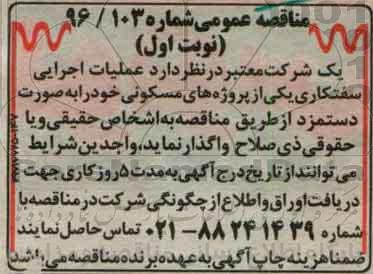 مناقصه عمومی شماره ۱۰۳ / ۹۶
(نوبت اول)
یک شرکت معتبر در نظر دارد عملیات اجرایی
سفتکاری یکی از پروژه های مسکونی خود را به صورت
دستمزد از طریق مناقصه به اشخاص حقیقی و یا
حقوقی ذی صلاح واگذار نماید، واجدین شرایط
می توانند از تاریخ درج آگهی به مدت ۵ روز کاری جهت
دریافت اوراق و اطلاع از چگونگی شرکت در مناقصه با
شماره ۳۹ ۱۴ ۲۴ ۸۸ - ۰۲۱ تماس حاصل نمایند
ضمنا هزینه چاپ آگهی به عهده برنده مناقصه می باشد